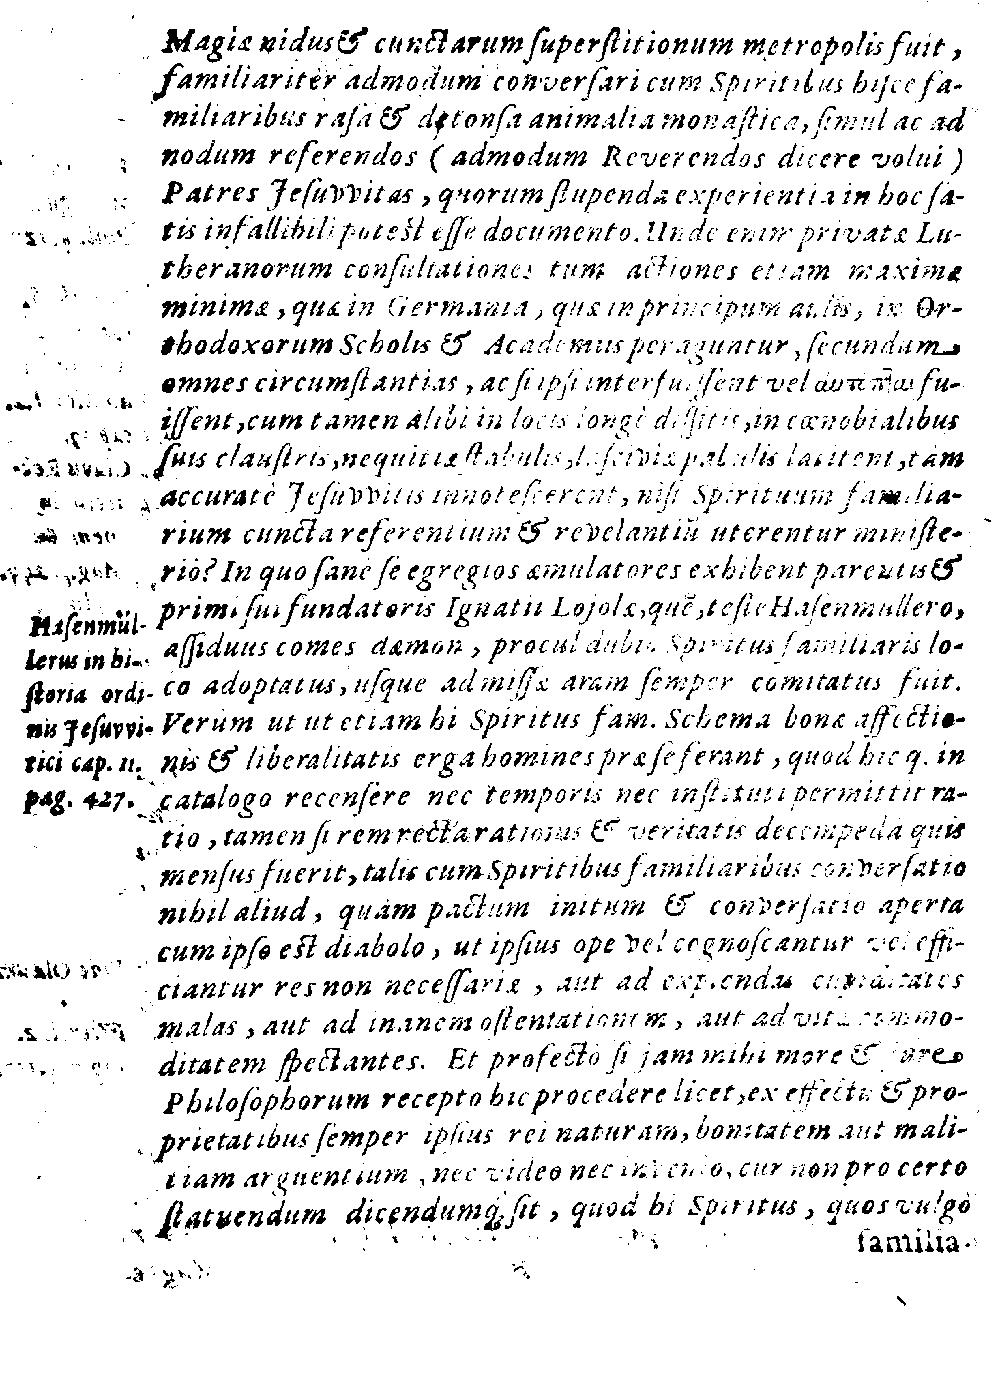 Magiæ nidus & cunctarum superstitionum metropolis fuit,
familiaritèr admodum conversari cum Spiritibus hisce fa-
miliaribus rasa & detonsa animalia monastica, simul ac ad
nodum referendos ( admodum Reverendos dicere volui )
Patres Jesuvvitas, quorum stupenda experientia in hoc sa-
tis infallibili potest esse documento. Unde enim privatæ Lu-
theranorum consultationes tum actiones etiam maximæ
minimæ, quæ in Germania, quæ in principum aulis, in Or-
thodoxorum Scholis & Academiis peraguntur, secundum
omnes circumstantias, ac si ipsi interfuissent vel fu-
issent, cum tamen alibi in locis longè dissitis, in cœnobialibus
suis claustris, nequitiæ stabulis, lasciviæ pabulis latitent, tàm
accuratè Jesuvvitis innotescerent, nisi Spirituum familia-
rium cuncta referentium & revelantiũ uterentur ministe-
rio? In quo sanè se egregios æmulatores exhibent parentis &
primi sui fundatoris Ignatii Lojolæ, quẽ, teste Hasenmullero,
assiduus comes dæmon, procul dubio Spiritus familiaris lo-
co adoptatus, usque ad missæ aram semper comitatus fuit.
Verùm ut ut etiam hi Spiritus fam. Schema bonæ affectio-
nis & liberalitatis erga homines præ se ferant, quod hic q. in
catalogo recensere nec temporis nec instituti permittit ra-
tio, tamen si rem recta rationis & veritatis decempedâ quis
mensus fuerit, talis cum Spiritibus familiaribus conversatio
nihil aliud, quàm pactum initum & conversatio aperta
cum ipso est diabolo, ut ipsius ope vel cognoscantur vel effi-
ciantur res non necessariæ, aut ad explendas cupiditates
malas, aut ad inanem ostentationem, aut ad vitæ commo-
ditatem spectantes. Et profectò si jam mihi more & jure
Philosophorum recepto hic procedere licet, ex effectu & pro-
prietatibus semper ipsius rei naturam, bonitatem aut mali-
tiam arguentium, nec video nec invenio, cur non pro certo
statuendum dicendumq; sit, quod hi Spiritus, quos vulgò
familia-
Hasenmül-
lerus in hi-
storia ordi-
nis Jesuvvi-
tici cap. 11.
pag. 427.